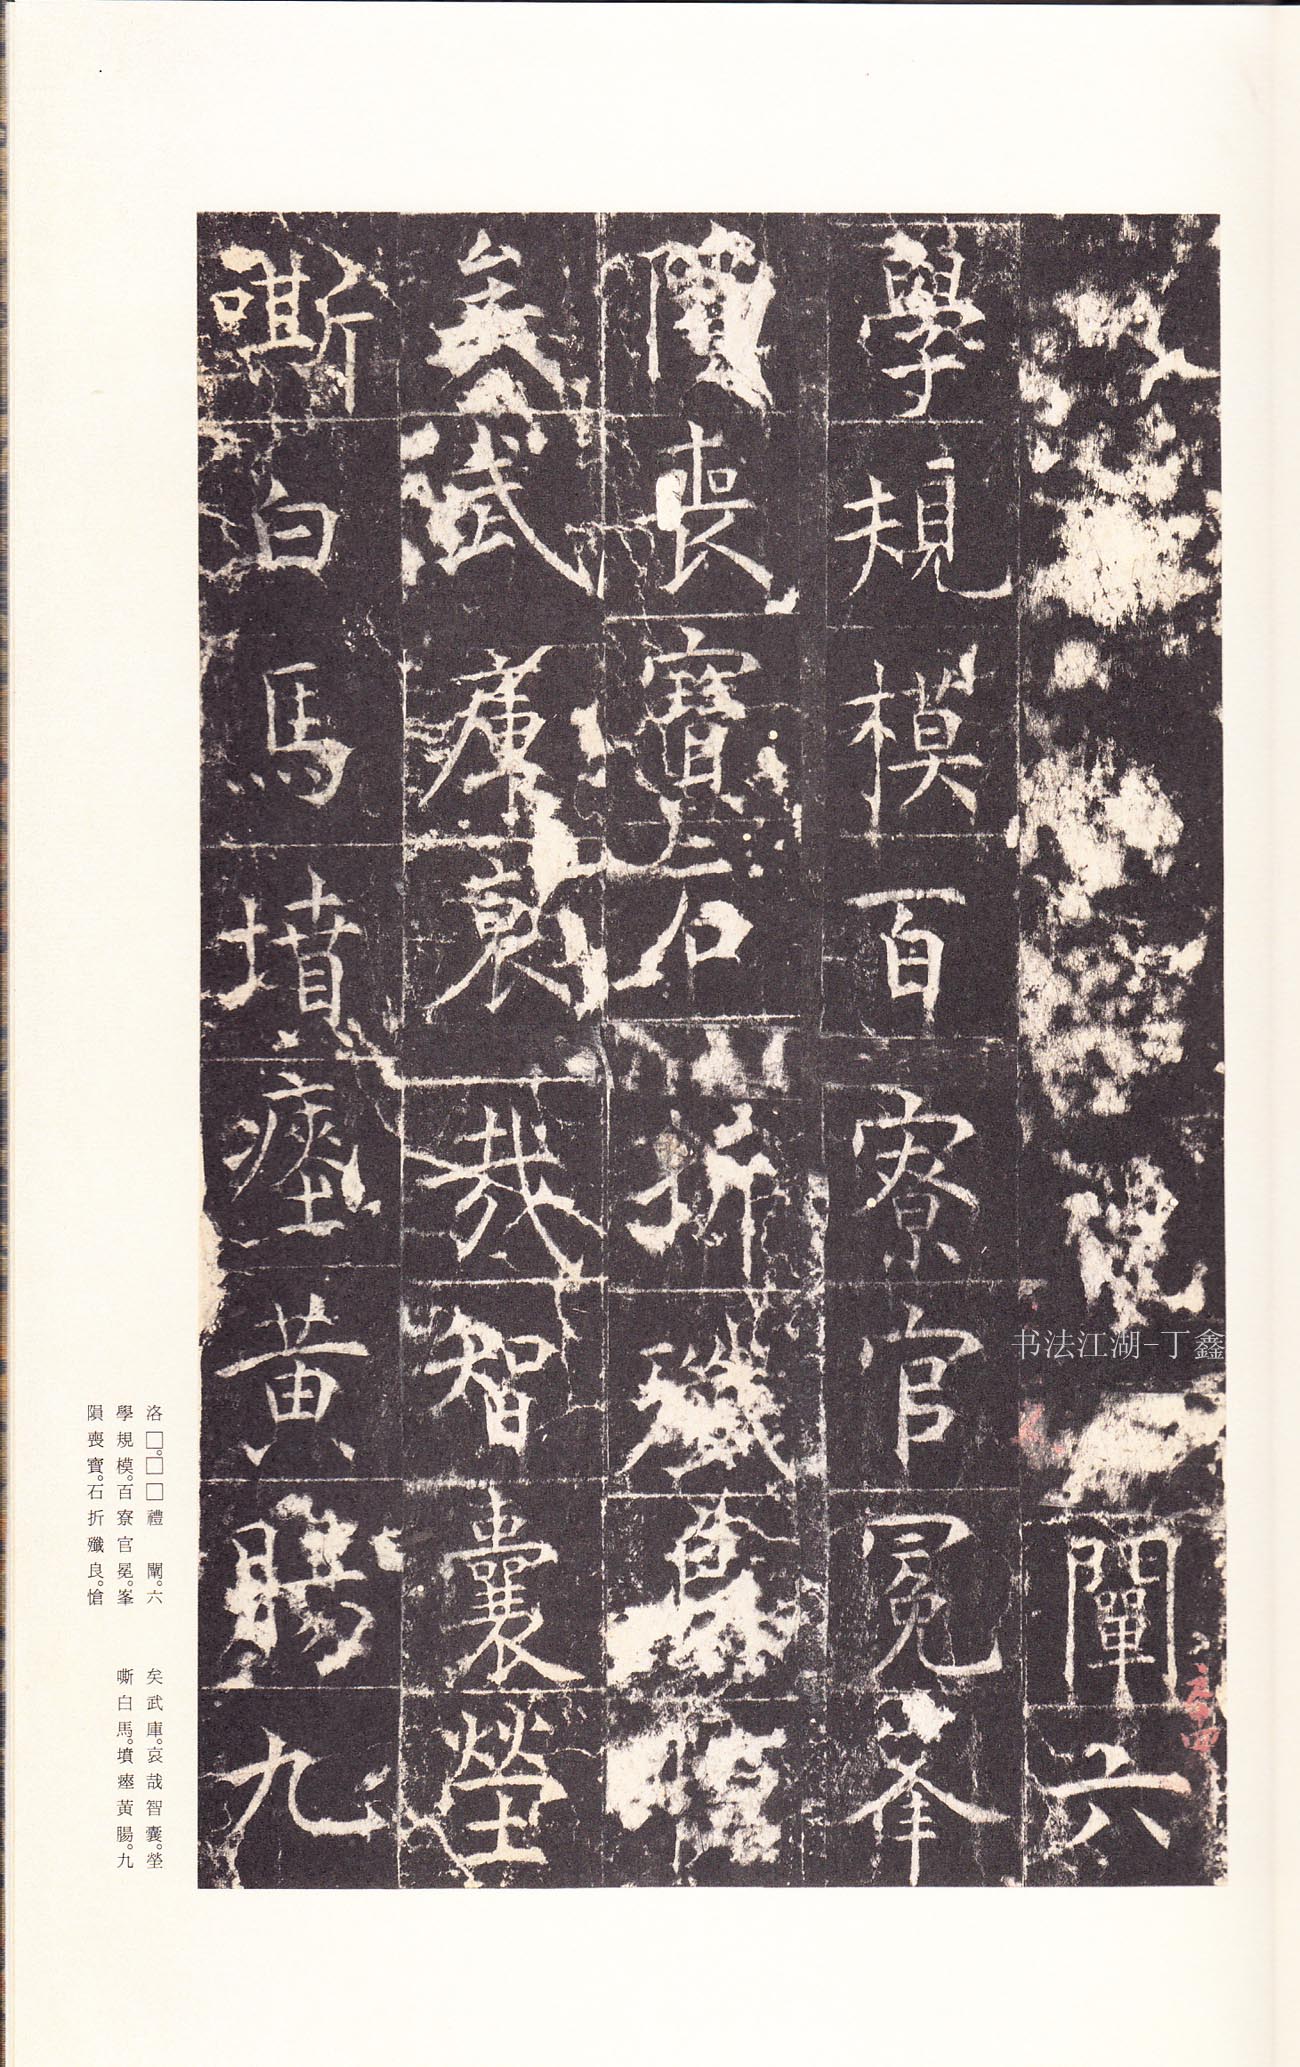 禮闈六
學規模百寮官冕峯
隕喪寶石折殲良愴
矣武庫哀哉智囊塋
嘶白馬墳瘞黃腸九
书法江湖-丁鑫
洛□。□□禮　闈。六
學規模。百寮官冕。峯
隕喪寶。石折殲良。愴
矣武庫。哀哉智囊。塋
嘶白馬。墳瘞黃腸。九